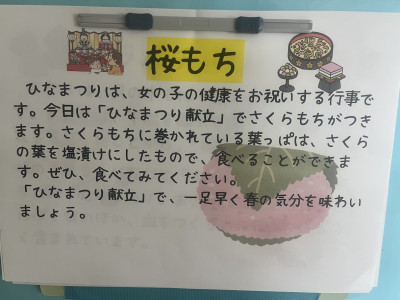 桜もち
ひなまつりは、女の子の健康をお祝いする行事で
す。今日は「ひなまつり献立」でさくらもちがつき
ます。さくらもちに巻かれている葉っぱは、さくら
の葉を塩漬けにしたもので、食べることができま
す。ぜひ、食べてみてください。
「ひなまつり献立」で、一足早く春の気分を味わい
ましょう。